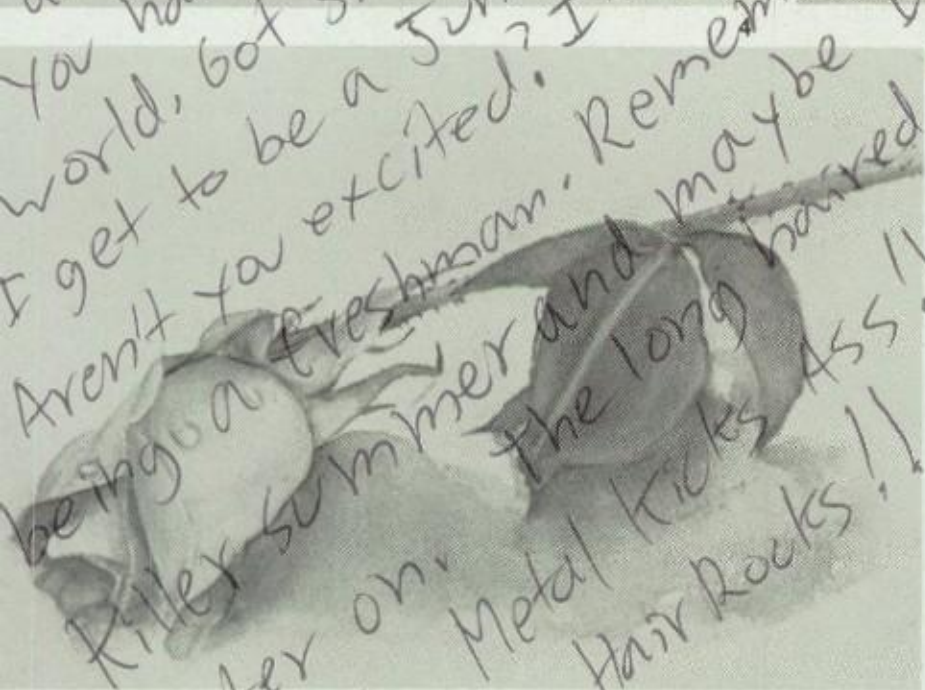 You
world, Got
I get to be a Jun
Aren't you excited? I
being a freshman. Remem
Killer summer and maybe
ter on.
the long haired
Metal Kicks Ass!!
Hair Rocks!!